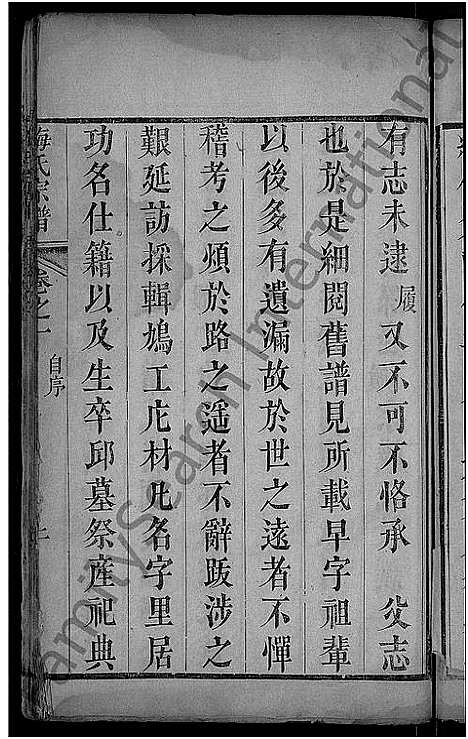 有志未逮履又不可不恪承父志
也於是細閱舊譜見所載早字祖輩
以後多有遺漏故於世之遠者不憚
稽考之煩於路之遥者不辭跋涉之
艱延訪採輯鳩工庀材凡名字里居
功名仕籍以及生卒邱墓祭産祀典
梅氏宗譜 卷之一 自序 二
FamilySearch International